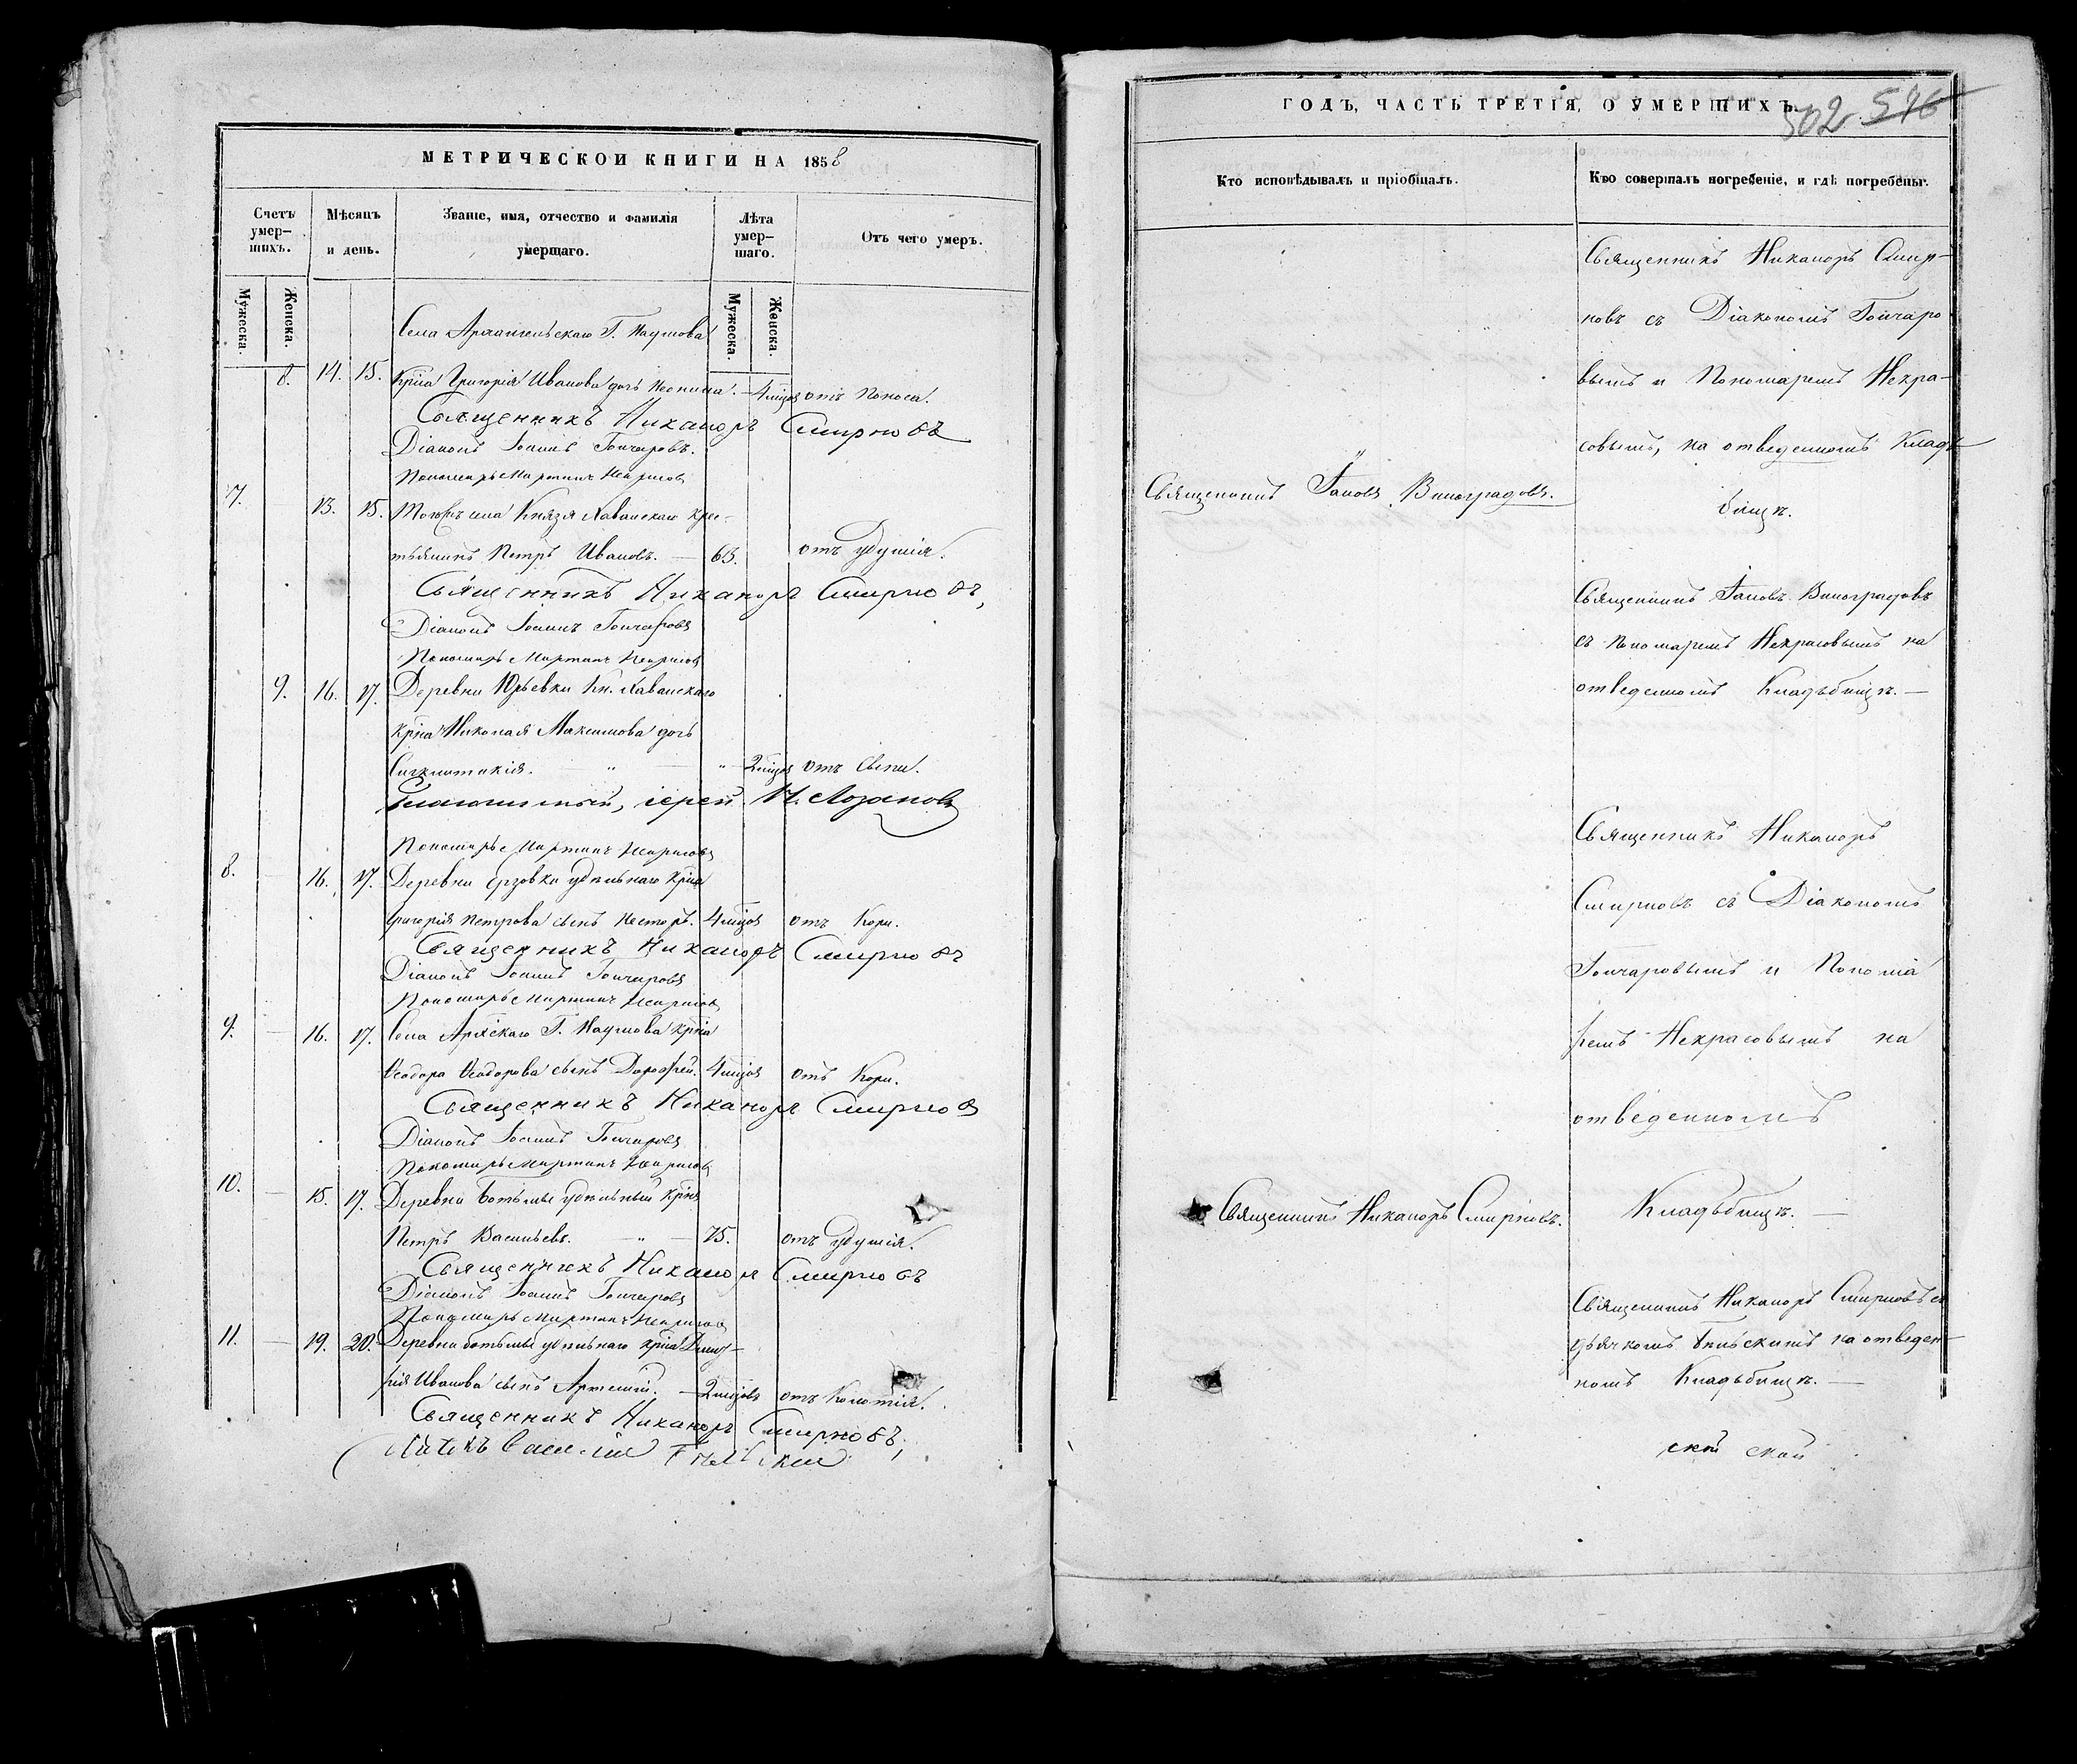 МЕТРИЧЕСКОЙ КНИГИ НА 1858
Счетъ умер-шихъ.
Мѣсяцъ и день.
Званіе, имя, отчество и фамилія умершаго.
Лѣта умер-шаго.
Отъ чего умеръ.
Мужеска.
Женска.
Мужеска.
Женска.
Села Архангельскаго Г. Наумова
8. 14. 15. Кр҃на Григорія Иванова дочь 4 мѣсяц отъ поноса.
Священникъ Никаноръ Смирновъ
Діаконъ Іоаннъ Гончаровъ.
Пономарь Мартинъ Некрасовъ
7. 13. 15. Тогожъ села Князя Хованскаго крес-
тьянинъ Петръ Ивановъ. — 63. отъ удушія.
Священникъ Никаноръ Смирновъ,
Діаконъ Іоаннъ Гончаровъ
Пономарь Мартинъ Некрасовъ
9. 16. 17. Деревни Юрьевки Кн. Хованскаго
крна Николая Максимова дочь
Синклитикія. — " — " 2 мѣсяц отъ сыпи.
іерей Н. Лозановъ
Пономарь Мартинъ Некрасовъ
8. — 16. 17. Деревни Ерзовки удѣльнаго крна
Григорія Петрова сынъ Несторъ. 4 мѣсяц отъ Кори.
Священникъ Никаноръ Смирновъ
Діаконъ Іоаннъ Гончаровъ
Пономарь Мартинъ Некрасовъ
9. — 16. 17. Села Архскаго Г. Наумова крна
Ѳеодора Ѳеодорова сынъ Дороѳей. 4 мѣсяц отъ Кори.
Священникъ Никаноръ Смирновъ
Діаконъ Іоаннъ Гончаровъ
Пономарь Мартинъ Некрасовъ
10. — 15. 17. Деревни Ботьмы удѣльный крнъ
Петръ Васильевъ. — " — 75. отъ удушія.
Священникъ Никаноръ Смирновъ
Діаконъ Іоаннъ Гончаровъ
Пономарь Мартинъ Некрасовъ
11. — 19. 20. Деревни Ботьмы удѣльнаго крна Дмит-
рія Иванова сынъ Артемій. — 2 мѣсяц отъ
Священникъ Никаноръ Смирновъ,
Василій
ГОДЪ, ЧАСТЬ ТРЕТІЯ, О УМЕРШИХЪ.
502 576
Кто исповѣдывалъ и пріобщалъ.
Кто совершалъ погребеніе, и гдѣ погребены.
Священникъ Никаноръ Смир-
новъ съ Діакономъ Гончаро
вымъ и Пономаремъ Некра-
совымъ, на отведенномъ Кладъ
бищѣ.
Священникъ Іаковъ Виноградовъ.
Священникъ Іаковъ Виноградовъ
съ пономаремъ Некрасовымъ на
отведенномъ Кладъбищѣ. —
Священникъ Никаноръ
Смирновъ съ Діакономъ
Гончаровымъ и Понома
ремъ Некрасовымъ на
отведенномъ
Кладъбищѣ. —
Священникъ Никаноръ Смирновъ.
Священникъ Никаноръ Смирновъ съ
дьячкомъ на отведен-
номъ Кладъбищѣ. —